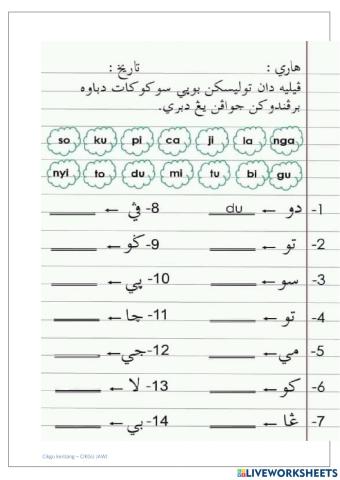 هاري :          تاريخ :
ڤيليه دان توليسكن بوڽي سوكوكات دباوه
برڤندوكن جواڤن يڠ دبري.
so ku pi ca ji la nga
nyi to du mi tu bi gu
1- دو ← du
8- ڤي ←
2- تو ←
9- ݢو ←
3- سو ←
10- ڽي ←
4- تو ←
11- چا ←
5- مي ←
12- جي ←
6- كو ←
13- لا ←
7- ڠا ←
14- بي ←
Cikgu kentang – CIKGU JAWI
LIVEWORKSHEETS